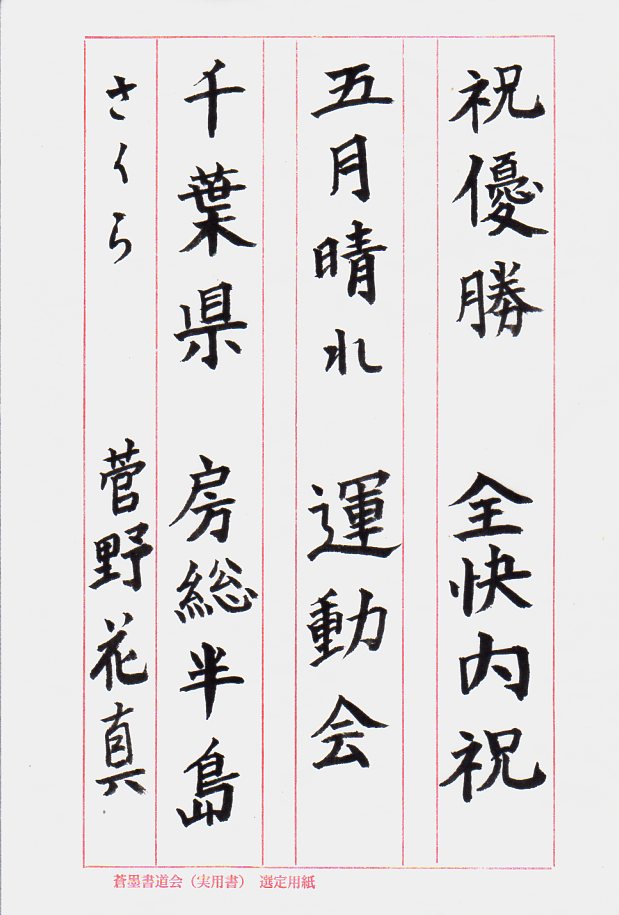 祝優勝　全快内祝
五月晴れ　運動会
千葉県　房総半島
さくら　菅野花真
蒼墨書道会（実用書）　選定用紙